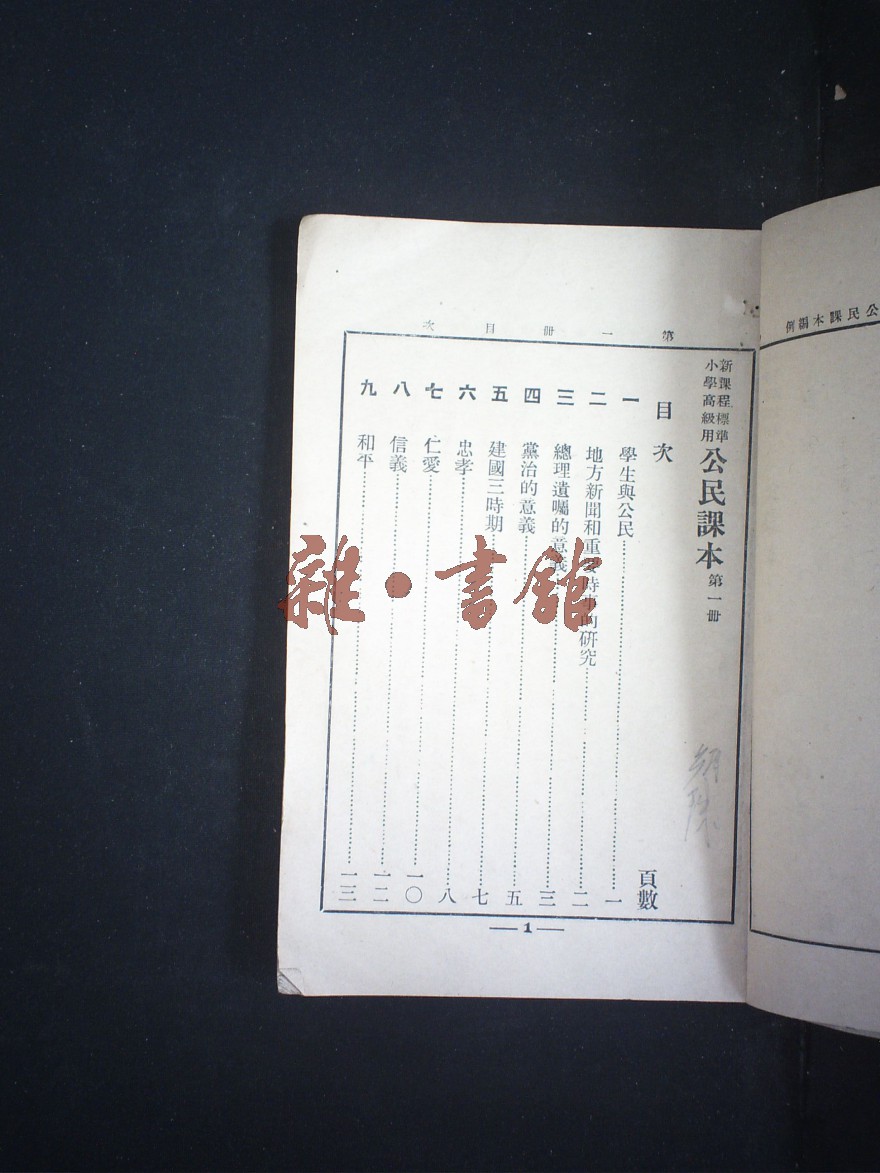 第一冊目次
新課程標準
小學高級用
公民課本 第一冊
目次
頁數
一 學生與公民 一
二 地方新聞和重要時事的研究 二
三 總理遺囑的意義 三
四 黨治的意義 五
五 建國三時期 七
六 忠孝 八
七 仁愛 一〇
八 信義 一二
九 和平 一三
— 1 —
公民課本編例
雜·書館